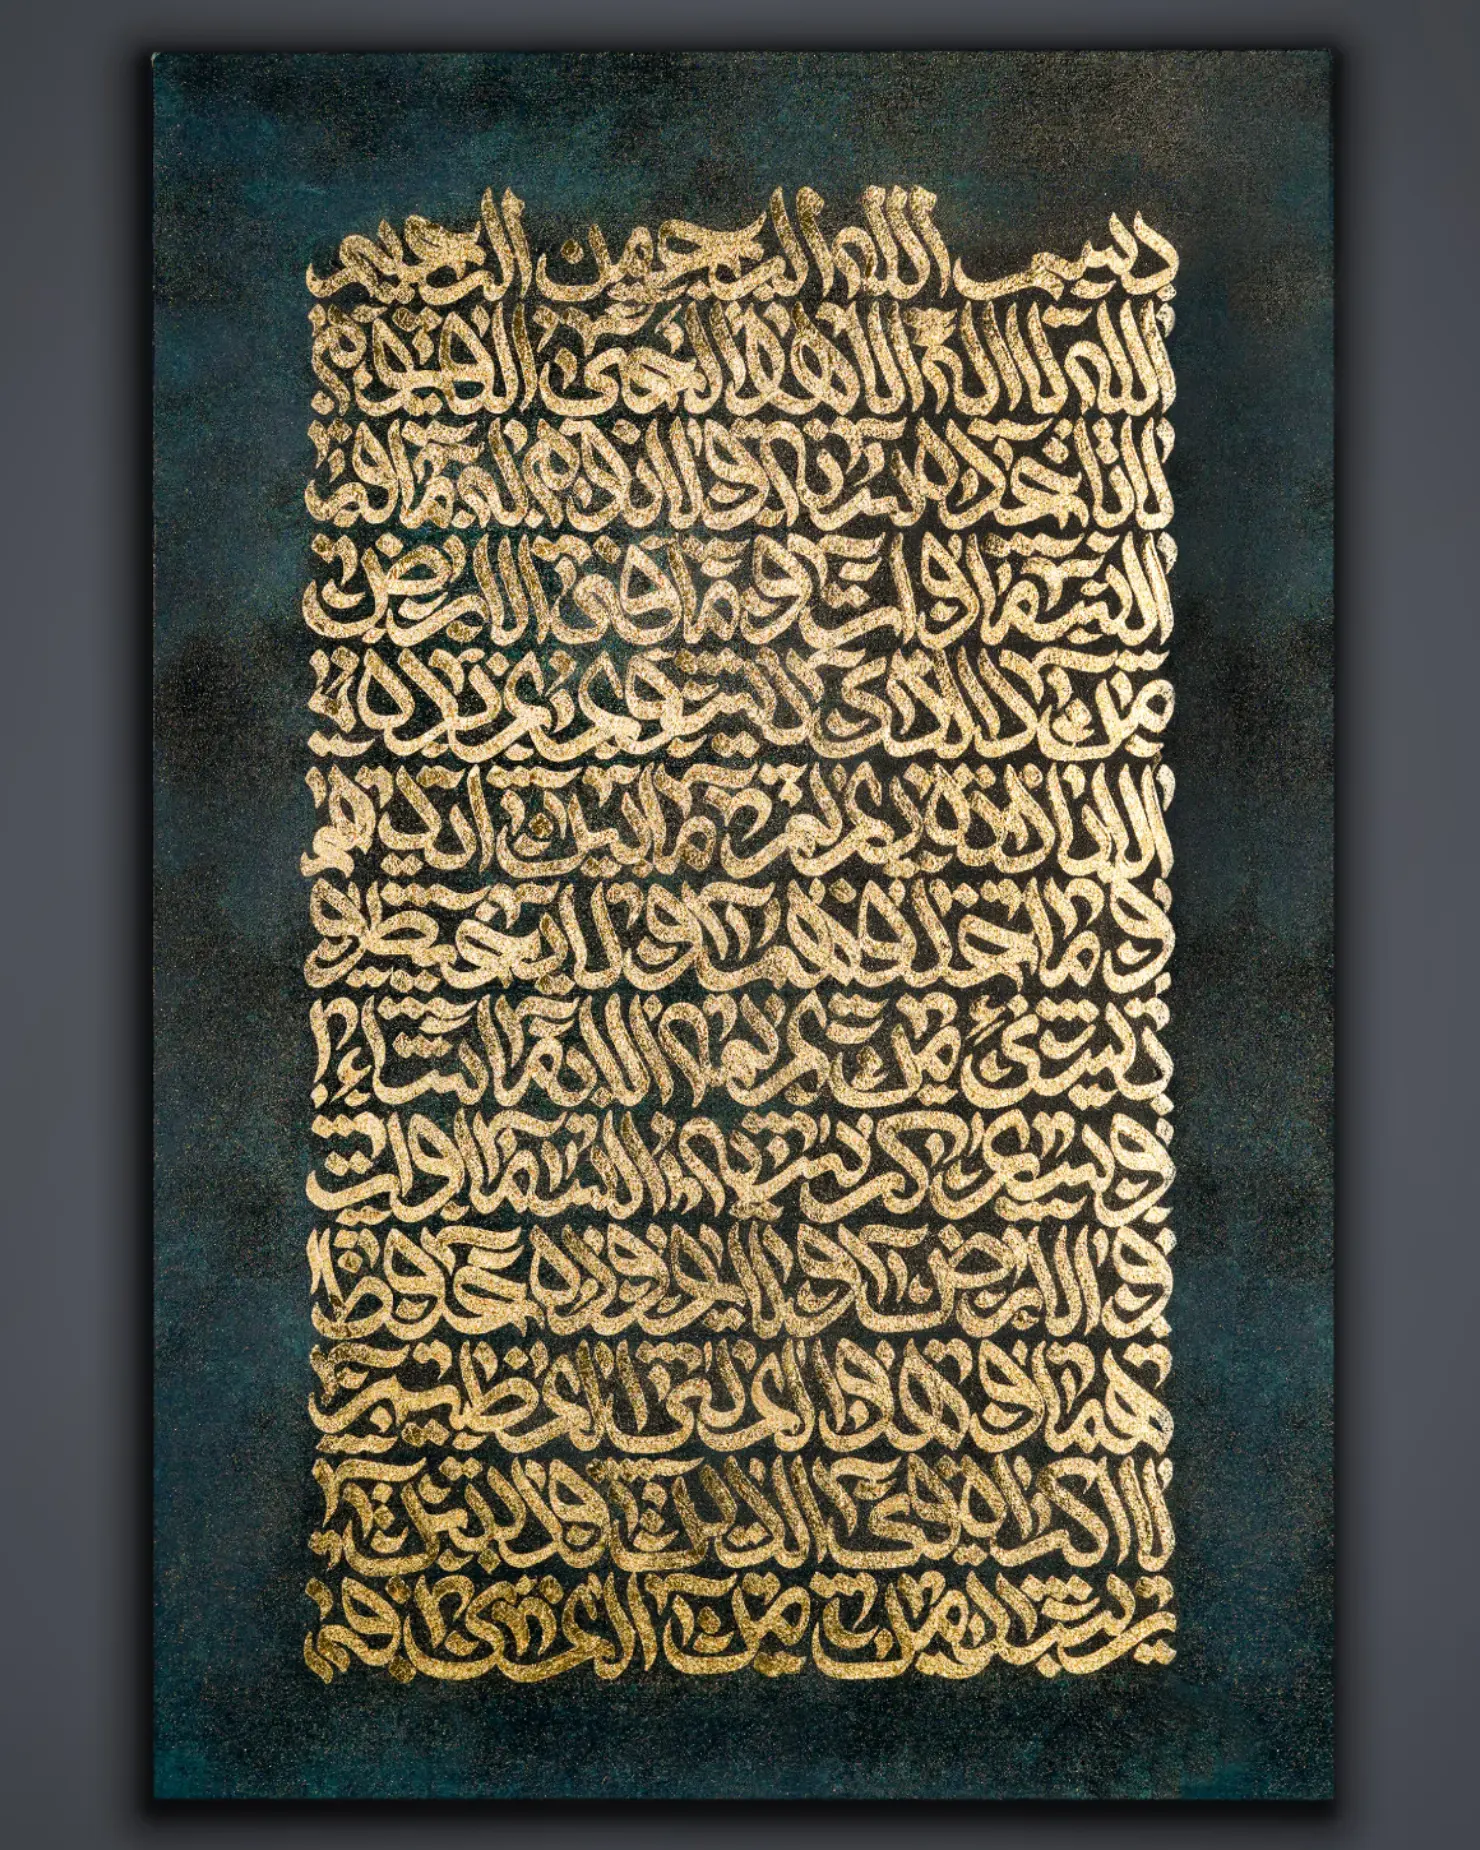 بسم الله الرحمن الرحيم
الله لا اله الا هو الحي القيوم
لا تاخذه سنة ولا نوم له ما في
السماوات وما في الارض
من ذا الذي يشفع عنده
الا باذنه يعلم ما بين ايديهم
وما خلفهم ولا يحيطو
بشيء من علمه الا بما شاء
وسع كرسيه السماوات
والارض ولا يوده حفظ
هما وهو العلي العظيم
لا اكراه في الدين قد تبين
من الغي